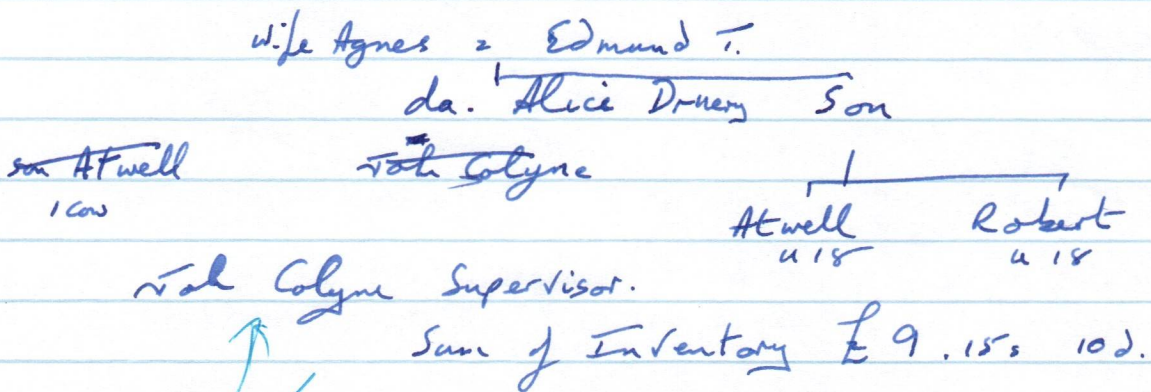 wife Agnes = Edmund T.
da. Alice Druery Son
son Atwell Joh Colyne
1 cow
Atwell Robert
u 18 u 18
Joh Colyne Supervisor.
Sum of Inventory £ 9 . 15s 10d.